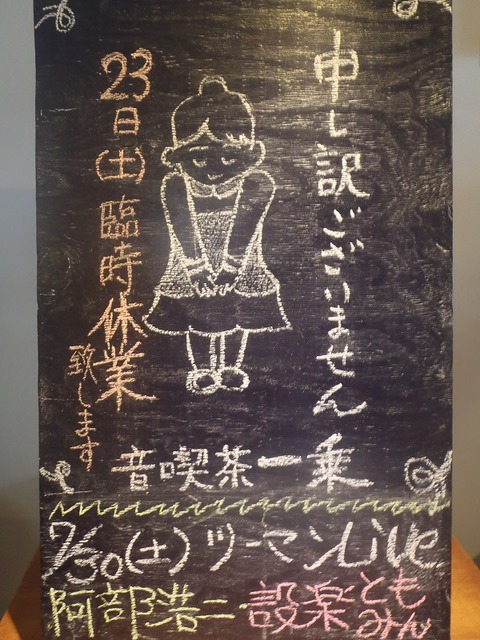 申し訳ございません
23日(土)臨時休業
致します
音喫茶一乗
7/30(土)ツーマンLive
阿部浩二・設楽とも
みん